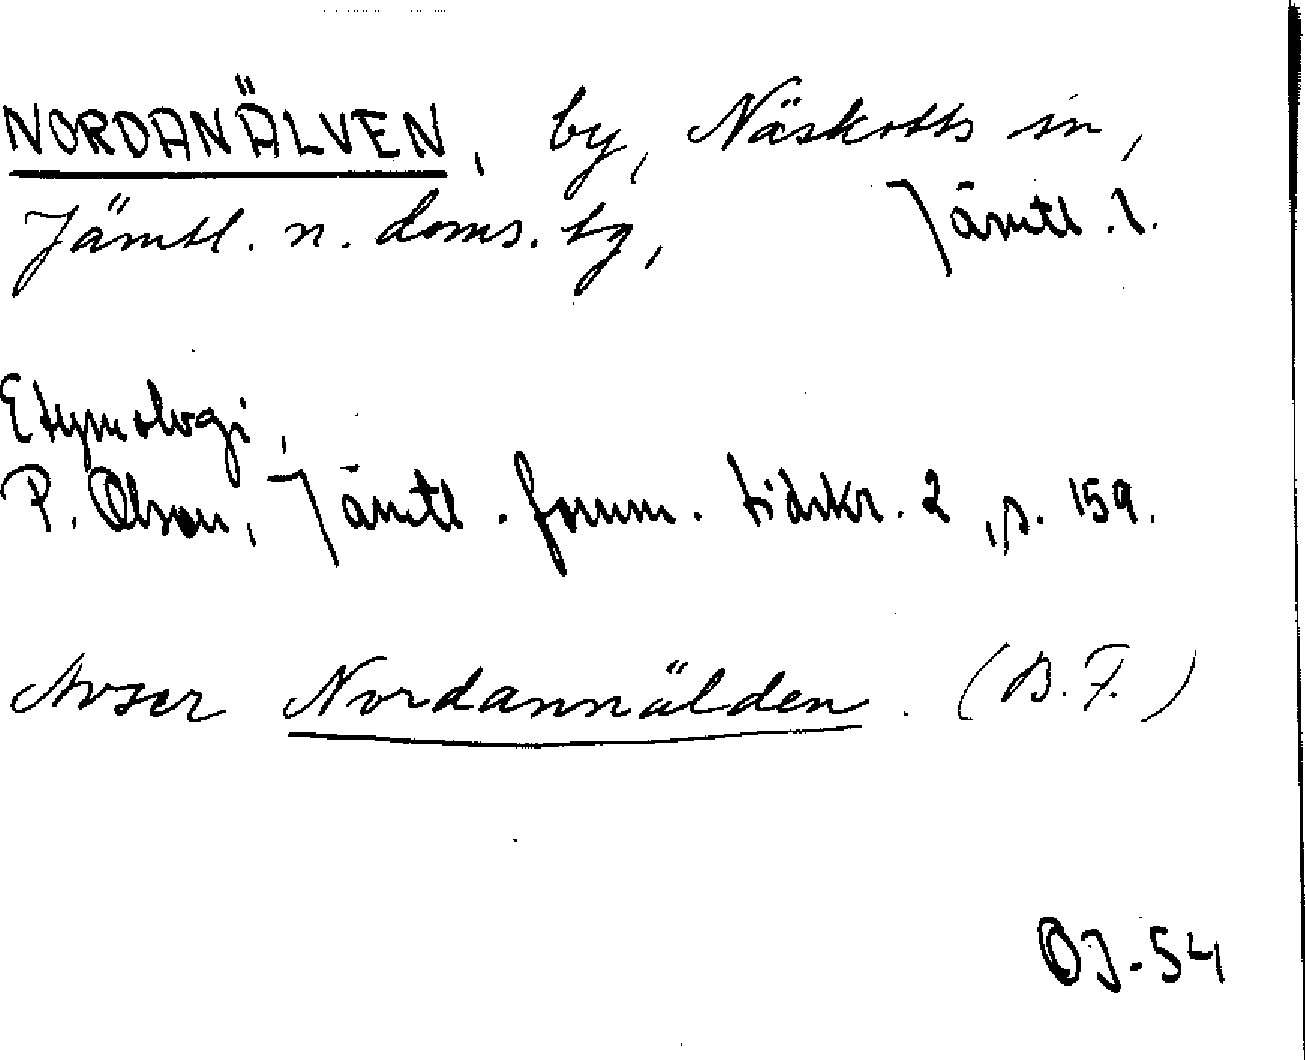 NORDANÄLVEN, by, Näskotts sn,
Jämtl. n. doms. tg, Jämtl. l.
Etymologi,
P. Olsson, Jämtl. fornm. tidskr. 2, s. 159.
Avser Nordannälden. (B.F.)
OJ-54